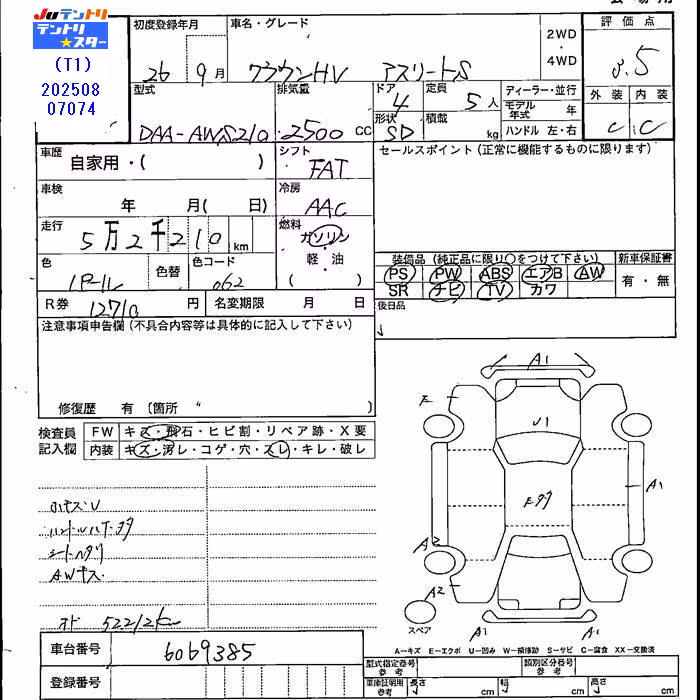 JUテントリ
テントリ
★スター
(T1)
202508
07074
初度登録年月
26 9月
車名・グレード
クラウンHV アスリートS
2WD
・
4WD
評価点
3.5
型式
DAA-AWS210
排気量
2500 CC
ドア
4
形状
SD
定員
5人
積載
kg
ディーラー・並行
モデル年式 年
ハンドル 左・右
外装 内装
C C
車歴
自家用・( )
シフト
FAT
セールスポイント(正常に機能するものに限ります)
車検
年 月( 日)
冷房
AAC
走行
5万2千210 km
燃料
ガソリン
・
軽・油
( )
色
パール
色替
色コード
062
装備品(純正品に限り○をつけて下さい)
PS PW ABS エアB AW
SR ナビ TV カワ
新車保証書
有・無
R券 12710 円
名変期限 月 日
後日品
注意事項申告欄(不具合内容等は具体的に記入して下さい)
修復歴 有 (箇所 〃 )
検査員
記入欄
FW キズ・飛石・ヒビ割・リペア跡・X要
内装 キズ・汚レ・コゲ・穴・スレ・キレ・破レ
AWキズ
オド 52212km
A1
E
U1
A1
A2
A2
A1
A1
スペア
A-キズ E-エクボ U-凹み W-補修跡 S-サビ C-腐食 XX-交換済
車台番号
6069385
登録番号
型式指定番号
参考
類別区分番号
参考
車庫証明用
参考
長さ cm
cm
cm